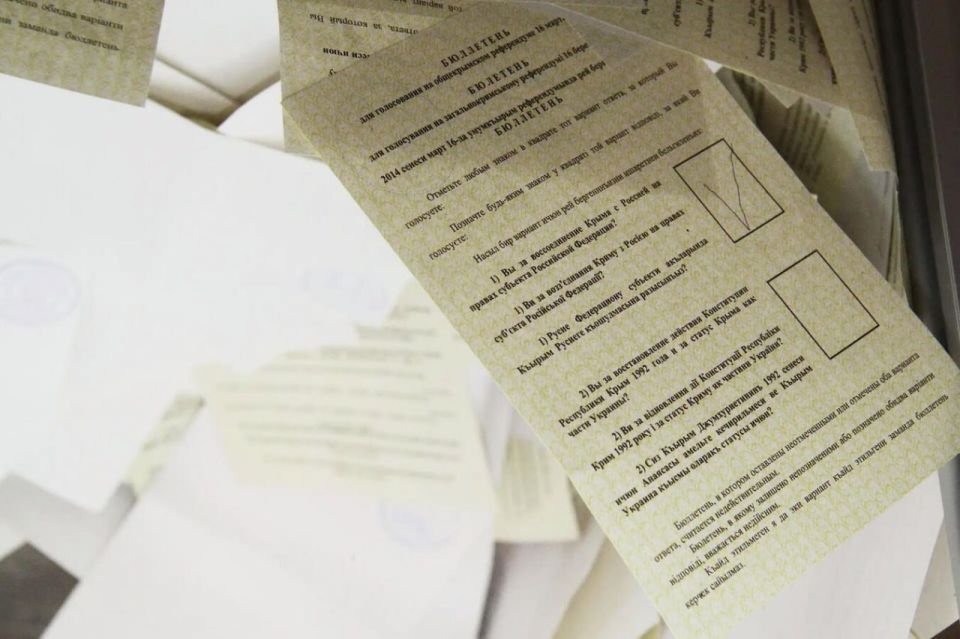 БЮЛЛЕТЕНЬ
для голосования на общекрымском референдуме 16 март
БЮЛЕТЕНЬ
для голосування на загальнокримському референдумі 16 бере
БЮЛЛЕТЕНЬ
2014 сенеси март 16-да умумкъырым референдумында рей бер
Отметьте любым знаком в квадрате тот вариант ответа, за который Вы
голосуете:
Позначте будь-яким знаком у квадраті той варіант відповіді, за який Ви
голосуєте:
Насыл бир вариант ичюн рей бергенинъизни ишаретнен бельгиленъиз:
1) Вы за воссоединение Крыма с Россией на
правах субъекта Российской Федерации?
1) Ви за возз'єднання Криму з Росією на правах
суб'єкта Російської Федерації?
1) Русие Федерациону субъекти акъларында
Къырым Русиеге къошулмасына разысынъыз?
2) Вы за восстановление действия Конституции
Республики Крым 1992 года и за статус Крыма как
части Украины?
2) Ви за відновлення дії Конституції Республіки
Крим 1992 року і за статус Криму як частини України?
2) Сиз Къырым Джумхуриетининъ 1992 сенеси
Анаясасы амельге кечирильмеси ве Къырым
Украина къысмы оларакъ статусы ичюн?
Бюллетень, в котором оставлены неотмеченными или отмечены оба варианта
ответа, считается недействительным.
Бюлетень, в якому залишено непозначеними або позначено обидва варіанти
відповіді, вважається недійсним.
Къайд этильмеген я да эки вариант къайд этильген заманда бюллетень
керчек сайылмаз.